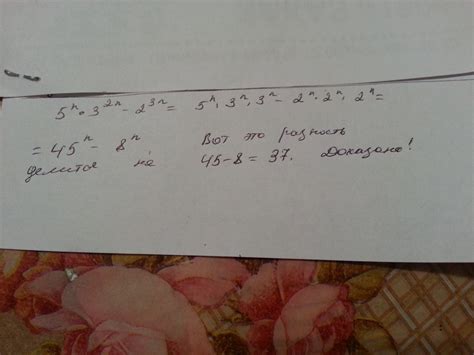 5ⁿ·3²ⁿ - 2³ⁿ = 5ⁿ·3ⁿ·3ⁿ - 2ⁿ·2ⁿ·2ⁿ =
= 45ⁿ - 8ⁿ. Вот это разность
делится на 45-8 = 37. Доказано!